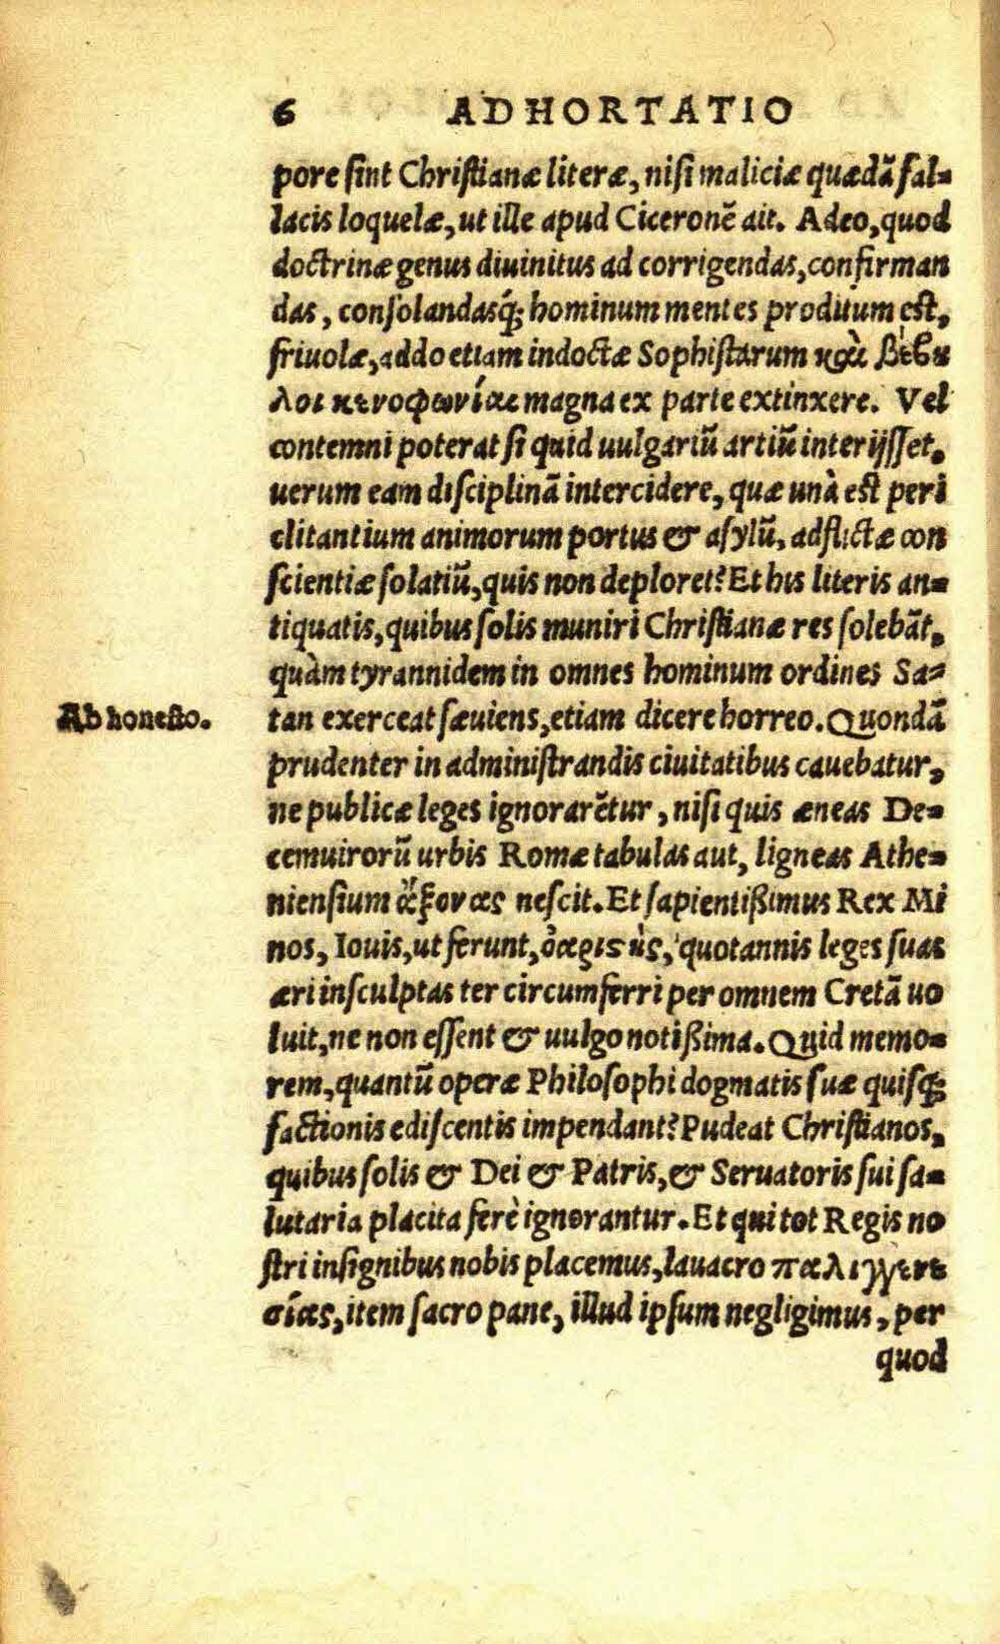 6 ADHORTATIO
pore sint Christianæ literæ, nisi maliciæ quædã fal-
lacis loquelæ, ut ille apud Ciceronẽ ait. Adeo, quod
doctrinæ genus diuinitus ad corrigendas, confirman
das, consolandasq́; hominum mentes proditum est,
friuolæ, addo etiam indoctæ Sophistarum καὶ βέβη
λοι κενοφωνίαι magna ex parte extinxere. Vel
contemni poterat si quid uulgariũ artiũ interijsset.
uerum eam disciplinã intercidere, quæ unà est peri
clitantium animorum portus & asylũ, adflictæ con
scientiæ solatiũ, quis non deploret? Et his literis an-
tiquatis, quibus solis muniri Christianæ res solebãt,
quàm tyrannidem in omnes hominum ordines Sa-
Ab honesto.
tan exerceat sæuiens, etiam dicere horreo. Quondã
prudenter in administrandis ciuitatibus cauebatur,
ne publicæ leges ignorarẽtur, nisi quis æneas De-
cemuirorũ urbis Romæ tabulas aut, ligneas Athe-
niensium ἄξονας nescit. Et sapientißimus Rex Mi
nos, Iouis, ut ferunt, ὀαριστὺς, quotannis leges suas
æri insculptas ter circumferri per omnem Cretã uo
luit, ne non essent & uulgo notißima. Quid memo-
rem, quantũ operæ Philosophi dogmatis suæ quisq;
factionis ediscentis impendant? Pudeat Christianos,
quibus solis & Dei & Patris, & Seruatoris sui sa-
lutaria placita ferè ignorantur. Et qui tot Regis no
stri insignibus nobis placemus, lauacro παλιγγενε
σίας, item sacro pane, illud ipsum negligimus, per
quod